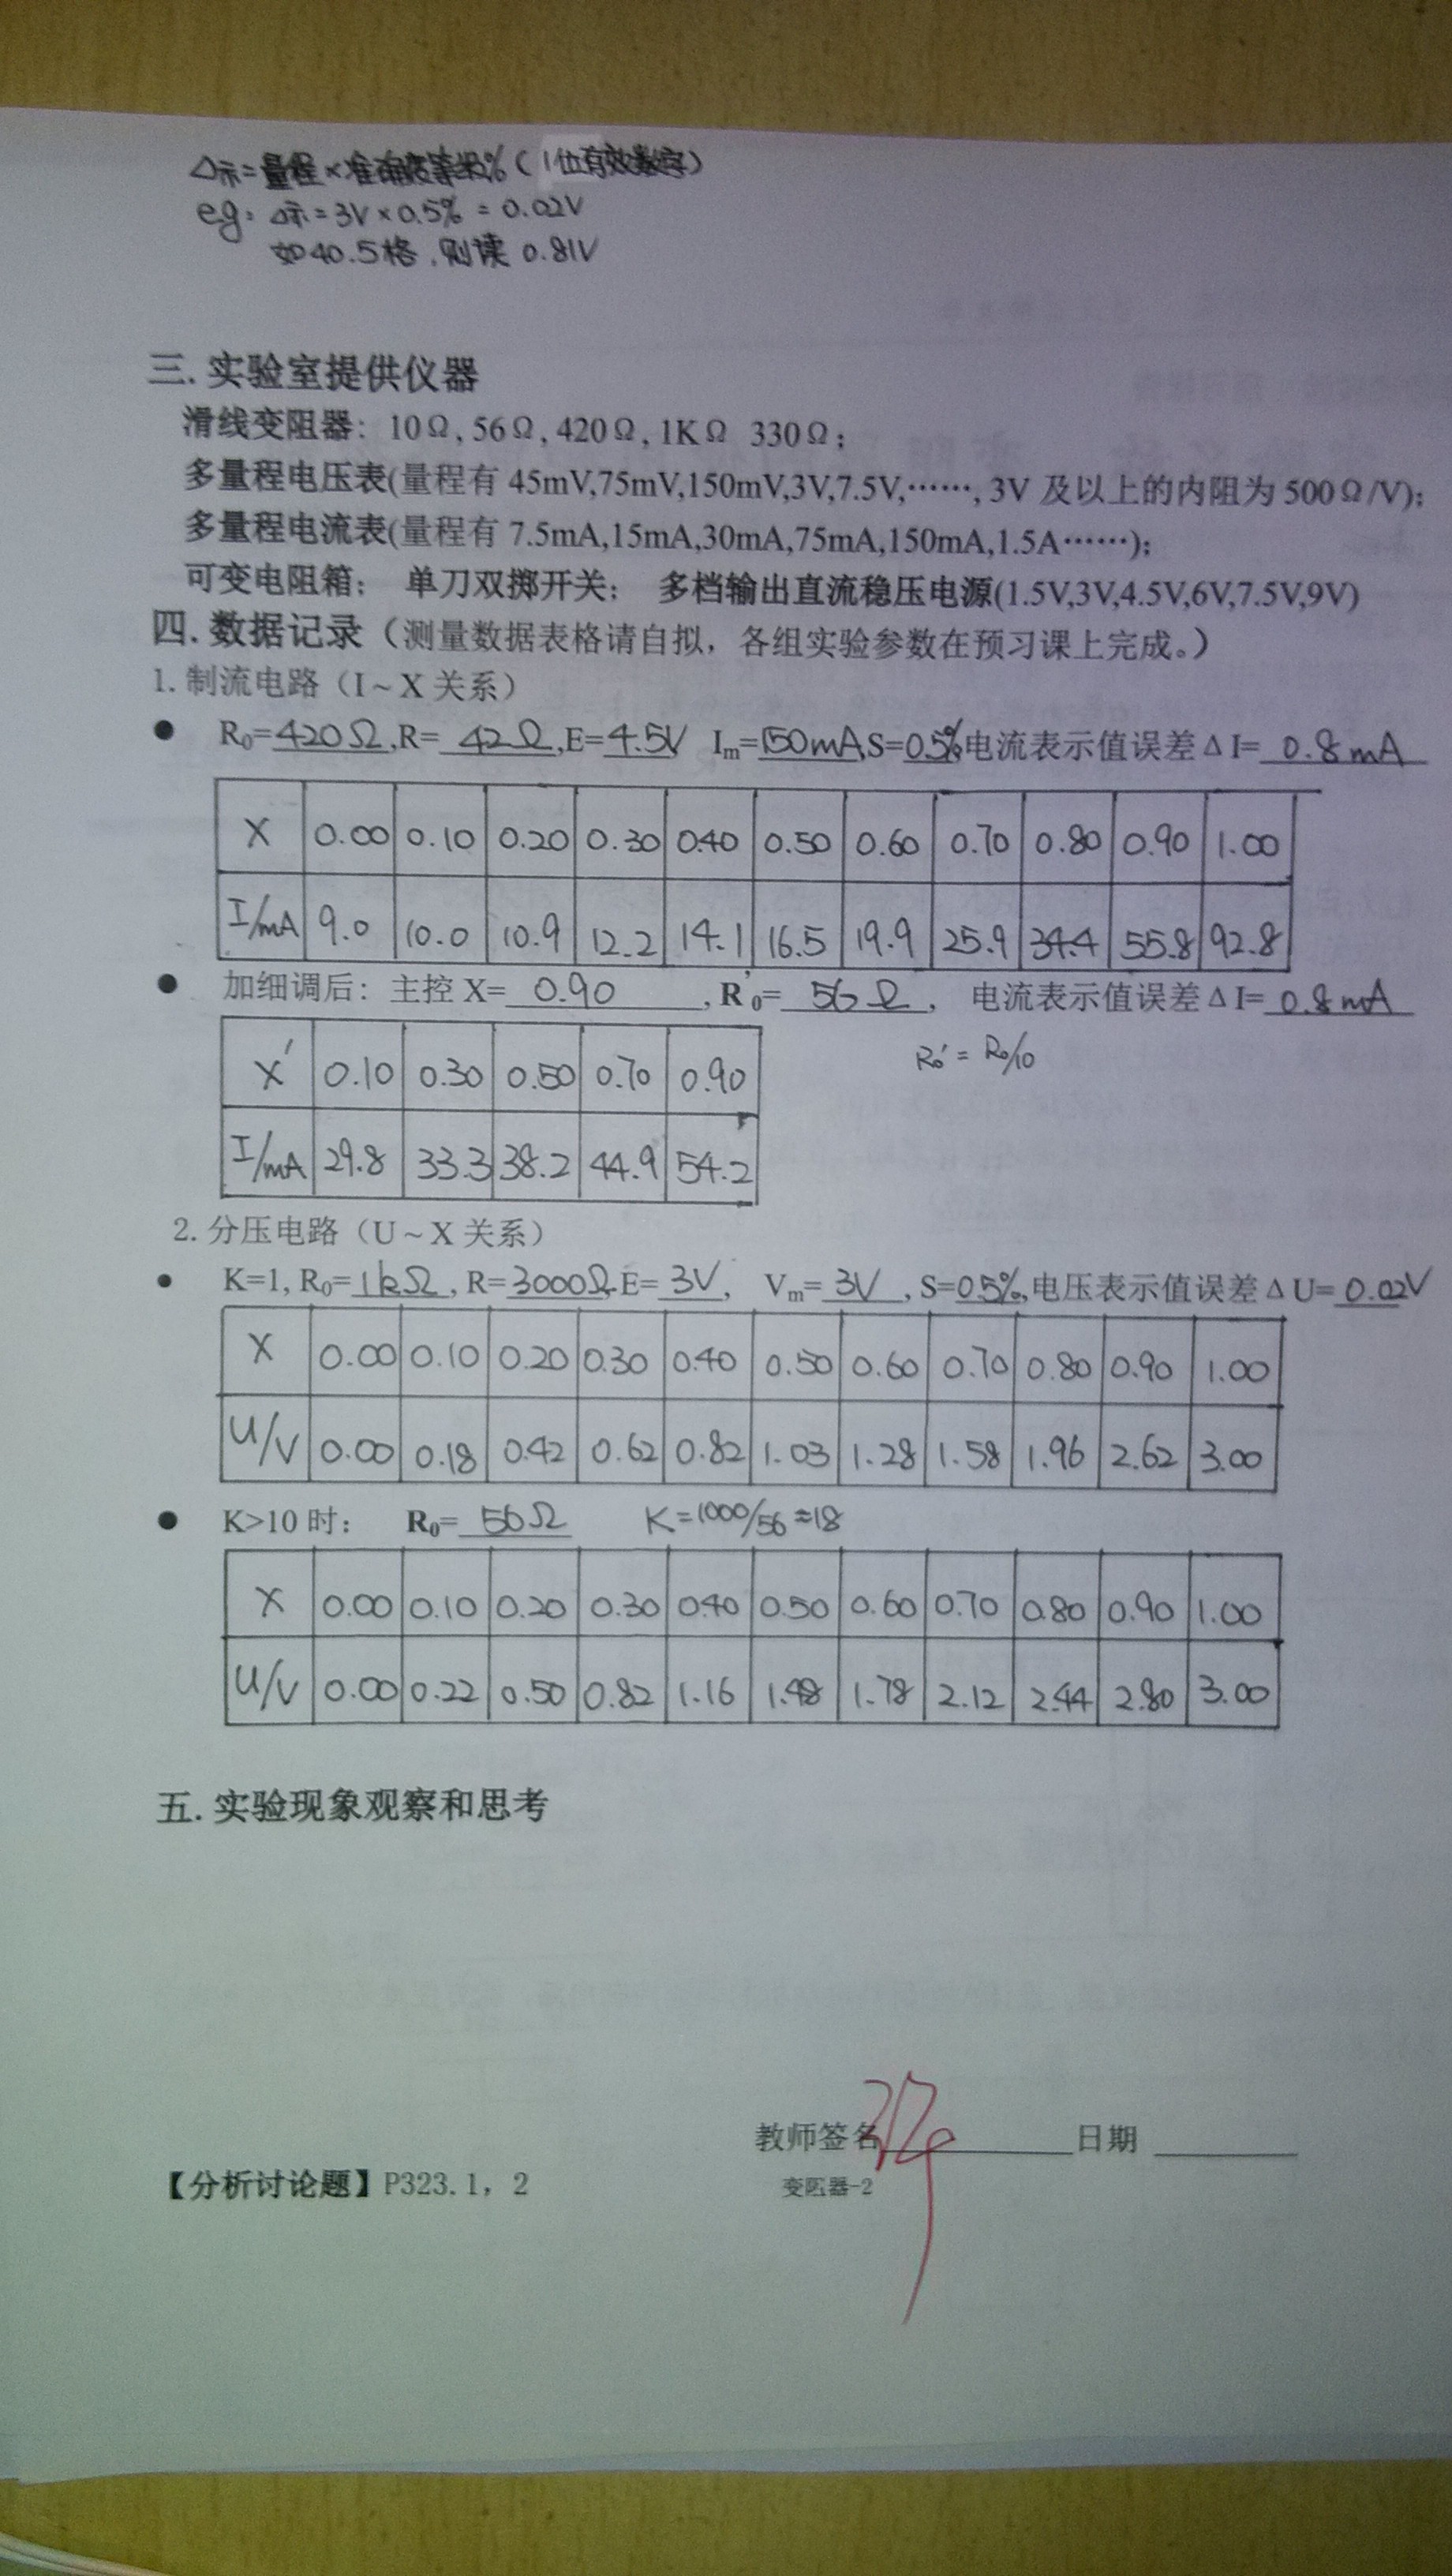 Δ示=量程×准确度等级%(1位有效数字)
eg: Δ示=3V×0.5%=0.02V
如40.5格,则读 0.81V
三. 实验室提供仪器
滑线变阻器: 10Ω, 56Ω, 420Ω, 1KΩ 330Ω;
多量程电压表(量程有 45mV,75mV,150mV,3V,7.5V,……, 3V 及以上的内阻为 500Ω/V);
多量程电流表(量程有 7.5mA,15mA,30mA,75mA,150mA,1.5A……);
可变电阻箱; 单刀双掷开关; 多档输出直流稳压电源(1.5V,3V,4.5V,6V,7.5V,9V)
四. 数据记录(测量数据表格请自拟,各组实验参数在预习课上完成。)
1. 制流电路(I~X 关系)
● R₀=420Ω,R= 42Ω,E=4.5V Iₘ=150mA,S=0.5%,电流表示值误差ΔI= 0.8mA
X 0.00 0.10 0.20 0.30 0.40 0.50 0.60 0.70 0.80 0.90 1.00
I/mA 9.0 10.0 10.9 12.2 14.1 16.5 19.9 25.9 34.4 55.8 92.8
● 加细调后: 主控 X= 0.90 , R'₀= 56Ω , 电流表示值误差ΔI= 0.8mA
R₀'=R₀/10
X' 0.10 0.30 0.50 0.70 0.90
I/mA 29.8 33.3 38.2 44.9 54.2
2. 分压电路(U~X 关系)
● K=1, R₀=1kΩ, R=3000Ω E= 3V, Vₘ=3V, S=0.5%,电压表示值误差ΔU=0.02V
X 0.00 0.10 0.20 0.30 0.40 0.50 0.60 0.70 0.80 0.90 1.00
U/V 0.00 0.18 0.42 0.62 0.82 1.03 1.28 1.58 1.96 2.62 3.00
● K>10 时: R₀= 56Ω K=1000/56≈18
X 0.00 0.10 0.20 0.30 0.40 0.50 0.60 0.70 0.80 0.90 1.00
U/V 0.00 0.22 0.50 0.82 1.16 1.48 1.78 2.12 2.44 2.80 3.00
五. 实验现象观察和思考
教师签名 日期
【分析讨论题】P323.1, 2
变阻器-2